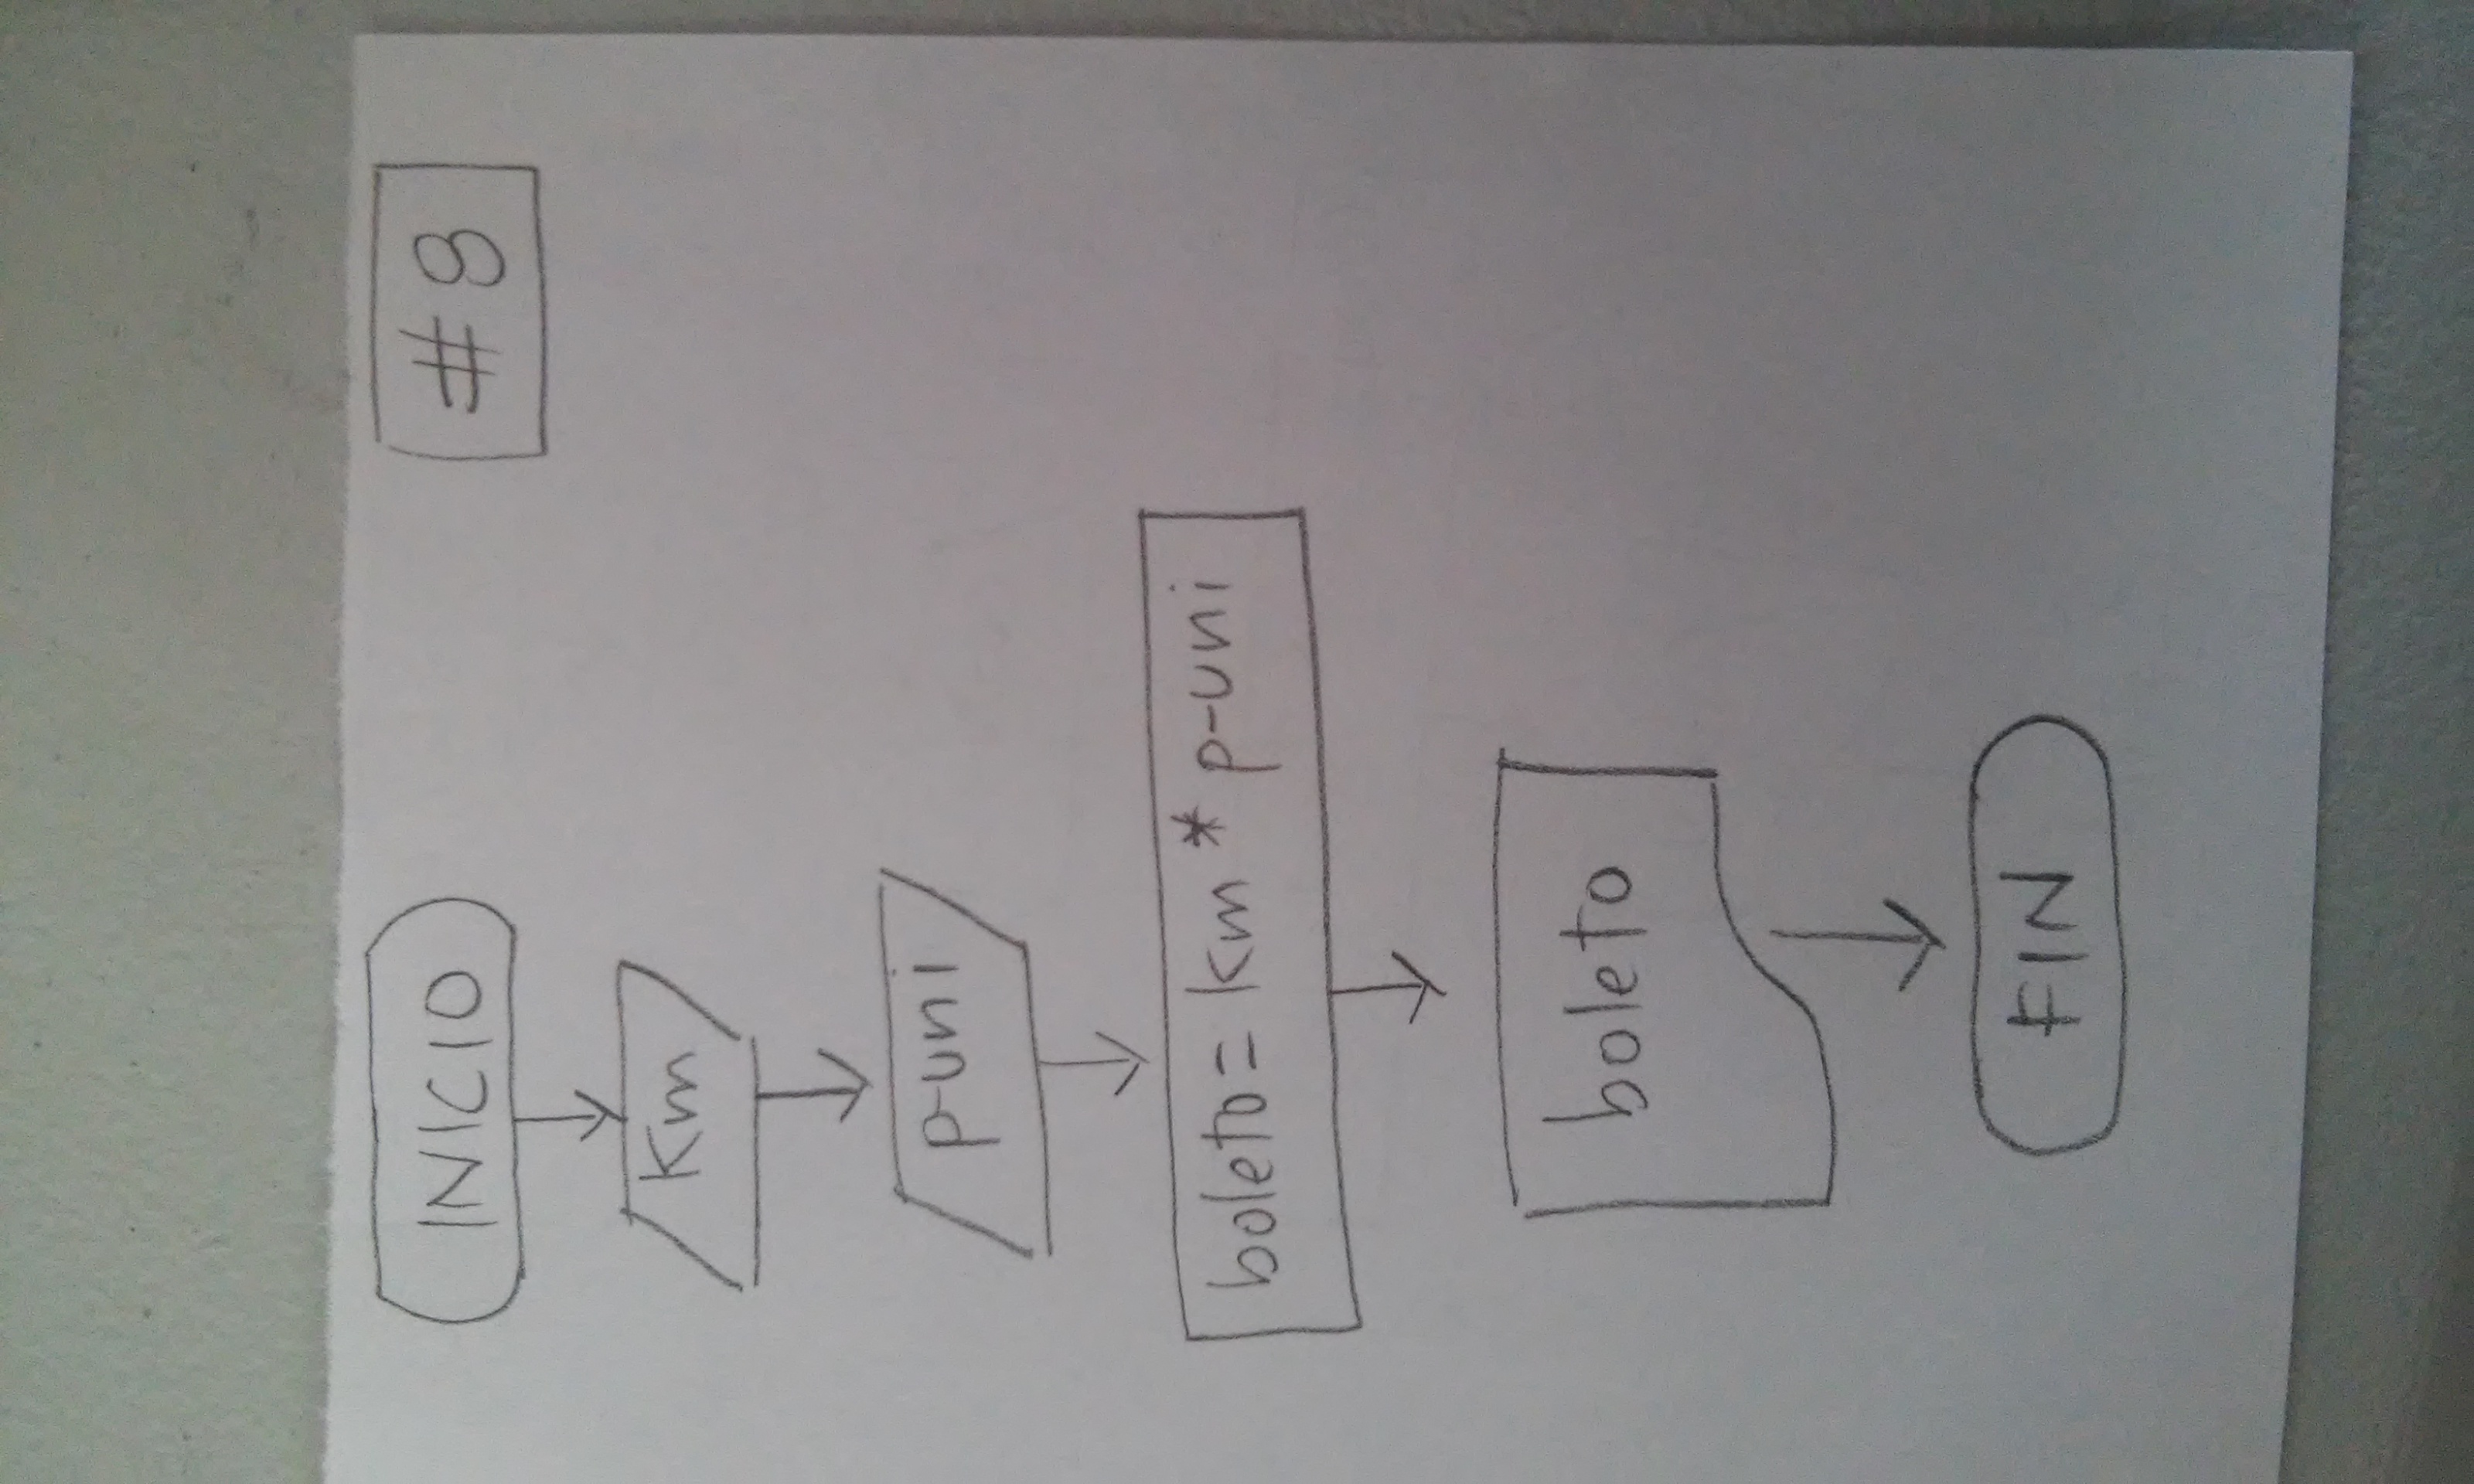 INICIO
#8
Km
p-uni
boleto = km * p-uni
boleto
FIN